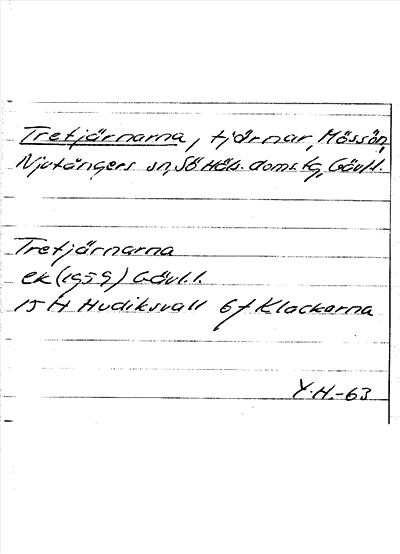 Tretjärnarna, tjärnar, Mössön,
Njutångers sn, Sö Häls. doms.tg, Gävl.l.
Tretjärnarna
ek (1959) Gävl.l.
15 H Hudiksvall 6f Klackarna
Y.H.-63